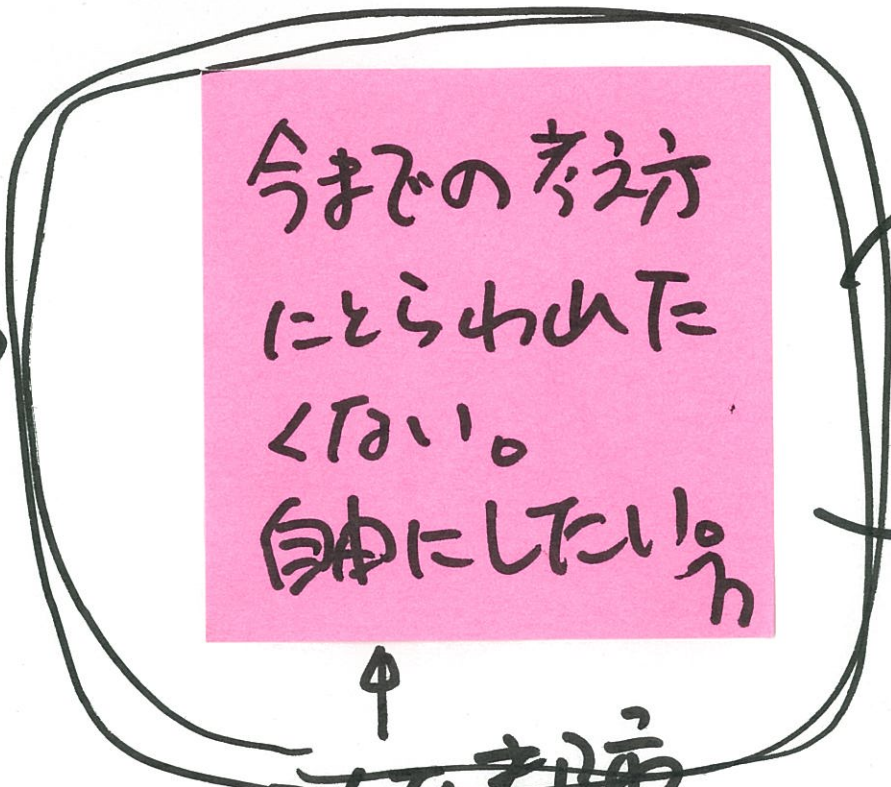 今までの考え方
にとらわれた
くない。
自由にしたい。
h